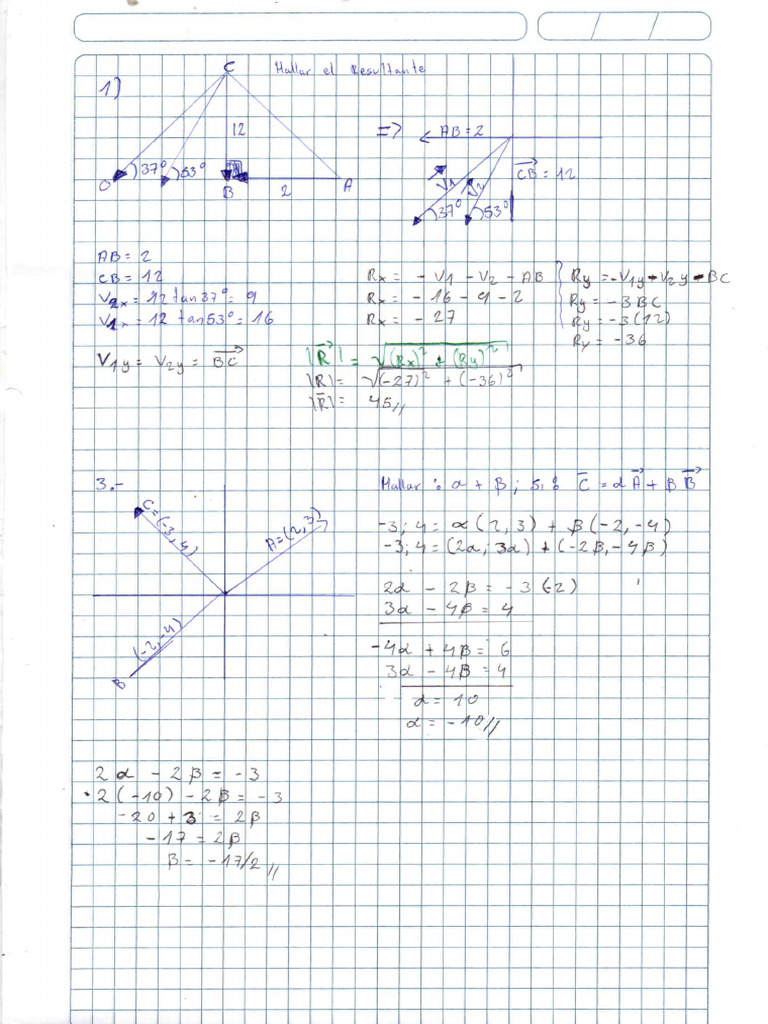 Hallar el Resultante
1)
C
12
37°
53°
O
B
2
A
=>
AB = 2
V1
V2
CB = 12
37°
53°
AB = 2
CB = 12
V2x = 12 tan37° = 9
V1x = 12 tan53° = 16
V1y = V2y = BC
Rx = - V1 - V2 - AB
Rx = - 16 - 9 - 2
Rx = - 27
Ry = -V1y - V2y - BC
Ry = -3BC
Ry = -3(12)
Ry = -36
|R| = √(Rx)² + (Ry)²
|R| = √(-27)² + (-36)²
|R| = 45//
3.-
C=(-3,4)
A=(2,3)
(-2,-4)
B
Hallar : α + β ; si : C = αA + βB
-3;4 = α(2,3) + β(-2,-4)
-3;4 = (2α; 3α) + (-2β,-4β)
2α - 2β = -3 (-2)
3α - 4β = 4
-4α + 4β = 6
3α - 4β = 4
- α = 10
α = -10//
2α - 2β = -3
2(-10) - 2β = -3
-20 + 3 = 2β
-17 = 2β
β = -17/2//